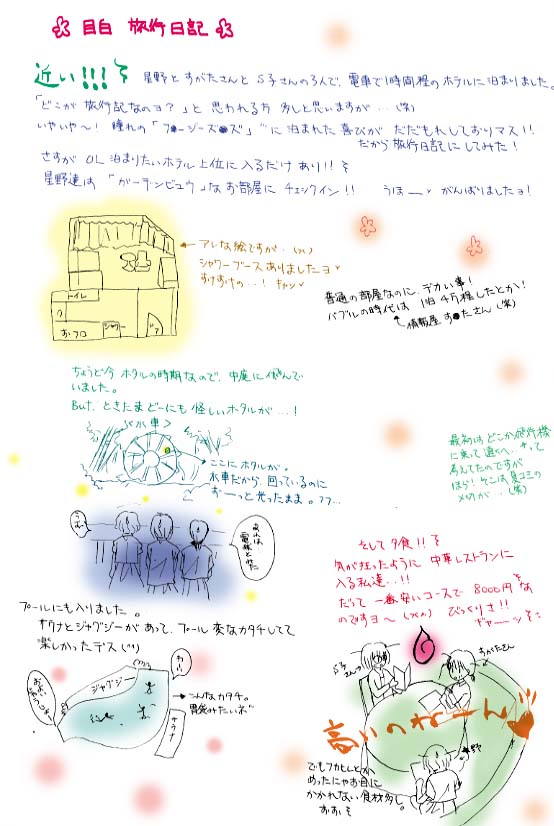 目白 旅行日記
近い!!!
星野とすがたさんとS子さんの3人で、電車で1時間程のホテルに泊まりました。
「どこが旅行記なのヨ?」と思われる方 多しと思いますが…(笑)
いやいや〜! 憧れの「フ●ージーズ●ズ」に泊まれた喜びが だだもれしておりマス!!
だから旅行日記にしてみた!
さすがOL泊まりたいホテル上位に入るだけあり!!
星野達は「ガーデンビュウ」なお部屋にチェックイン!! うほーっ がんばりましたョ!
←アレな絵ですが…
シャワーブースありましたヨ
すけすけの…! キャン
トイレ
おフロ
シャワー
ドア
普通の部屋なのに、デカい事!
バブルの時代は 1泊4万程したとか!
情報屋 す●たさん(笑)
ちょうど今ホタルの時期なので、中庭に
いました。
But, ときたまどーにも怪しいホタルが…!
<水車>
←ここにホタルが。
水車だから、回っているのに
ずーっと光ったまま。フフ…
最初はどこか飛行機
に乗って遠くへ…って
考えてたのですが
ほら! そこは夏コミの
〆切が…(笑)
そして夕食!!
気が狂ったように 中華レストランに
入る私達…!!
だって 一番安いコースで 8000円 な
のですヨ〜 びっくりさ!!
ギャーッ
プールにも入りました。
サウナとジャグジーがあって、プール 変なカタチしてて
楽しかったデス(^^)
ジャグジー
わーい
→こんなカタチ。
胃袋みたいネ
サウナ
S子さん
すがたさん
高いのねーん
星野
でもフカヒレとか
めったにゃお目に
かかれない食材多し。